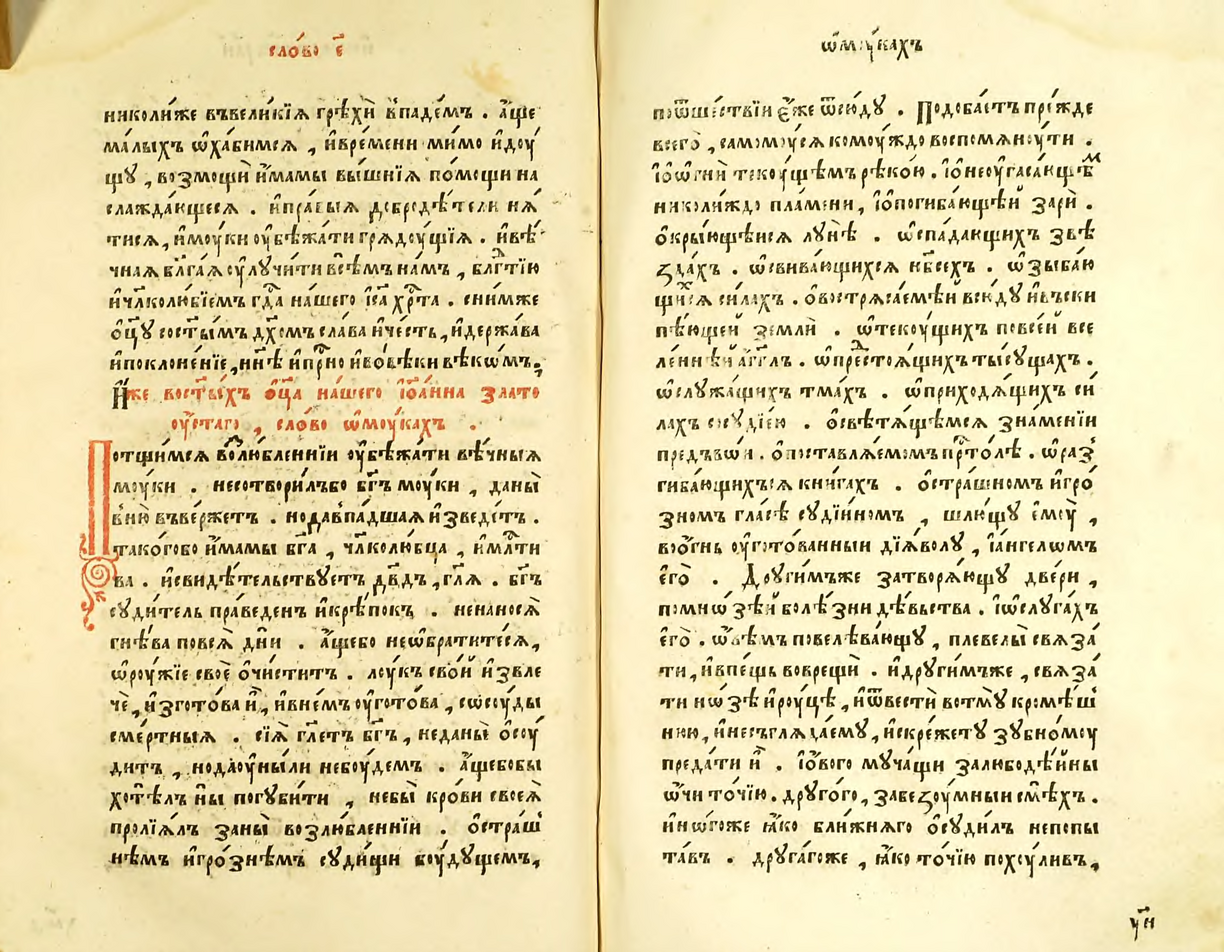 сло́во є҃
николи́же въвели́кїѧ грѣхѝ впаде́мъ . а҆́ще
ма́лыхъ ѡ҆ха́бимсѧ , и҆вре́мени ми́мо и҆дꙋ́
щꙋ , возмощѝ и҆́мамы вы́шнїѧ по́мощи на
слажда́ющесѧ . и҆пра́выѧ добродѣ́тели ꙗ҆
тисѧ , и҆моу́ки оу҆бѣжа́ти грѧдоу́щїѧ . и҆вѣ́
чнаѧ бл҃га́ѧ оу҆лꙋчи́ти всѣ́мъ на́мъ , блгⷣтїю
и҆чл҃колю́бїемъ гдⷭ҇а на́шего і҆са хрⷭ҇та̀ . сни́мже
ѻ҆ц҃ꙋ состы҃мъ дх҃омъ сла́ва и҆че́сть , и҆держа́ва
и҆поклоне́нїе , нн҃ѣ и҆при́сно и҆вовѣ́ки вѣкѡ́мъ .
И҆́же восты҃хъ ѻ҆ц҃а̀ на́шего і҆ѡа́нна злато
оу҆́стаго , сло́во ѡ҆моу́кахъ .
Потщи́мсѧ возлю́бленнїи оу҆бѣжа́ти вѣ́чныѧ
моу́ки . несотвори́лъбо бг҃ъ моу́ки , даны̀
вню̀ въве́ржетъ . нода́впадшаѧ и҆зведе́тъ .
тако́гобо и҆́мамы бг҃а , чл҃колю́бца , и҆мл҃ти
ва . и҆свидѣ́тельствꙋетъ дв҃дъ , гл҃ѧ . бг҃ъ
сꙋди́тель пра́веденъ и҆крѣ́покъ . ненаносѧ̀
гнѣ́ва повсѧ̀ дн҃и . а҆́щебо неѡ҆брати́тесѧ ,
ѡ҆роу́жїе своѐ ѻ҆чи́ститъ . лоу́къ сво́й и҆звле
чѐ , и҆згото́ва и҆̀ , и҆вне́мъ оу҆гото́ва , сѡсоу́ды
сме́ртныѧ . сїѧ̀ гл҃етъ бг҃ъ , неда́ны ѻ҆соу́
дитъ , нода́оу҆ны́ли небоу́демъ . а҆́щебобы
хотѣ́лъ ны̀ погꙋби́ти , небы̀ кро́ви своеѧ̀
пролїѧ́лъ заны̀ возлю́бленнїи . ѻ҆стра́ш
нѣмъ и҆гро́знѣмъ сꙋди́щи боу́дꙋщемъ ,
ѡ҆моу́кахъ
поѿше́ствїи є҆́же ѿсю́дꙋ . Подоба́етъ пре́жде
всего̀ , самомꙋ́сѧ комоу́ждо воспомѧноу́ти .
і҆ѻѡ҆гнѝ текоу́щѣмъ рѣко́ю . і҆ѻнеоу҆гаса́ющѣⷨ
николи́ждо пла́мени , і҆ѻпогиба́ющѣй зарѝ .
ѻ҆кры́ющѣисѧ лꙋнѣ̀ . ѡ҆спа́дающихъ звѣ
ꙁда́хъ . ѡ҆свива́ющихсѧ нб҃се́хъ . ѡ҆зыба́ю
щихсѧ си́лахъ . ѻ҆вострѧса́емѣй всю́дꙋ и҆въски
пѣ́ющей землѝ . ѡ҆текоу́щихъ повсе́й все
ле́ннѣй а҆́гг҃лъ . ѡ҆престоѧ́щихъ ты́сꙋщахъ .
ѡ҆слꙋжа́щихъ тма́хъ . ѡ҆приходѧ́щихъ си́
лахъ ссꙋдїе́ю . ѻ҆свѣтѧ́щѣмсѧ зна́менїи
предъвѡ́и . ѻ҆поставлѧ́емомъ прⷭ҇то́лѣ . ѡ҆раз
гиба́ющихъсѧ кни́гахъ . ѻ҆стра́шномъ и҆гро́
зномъ гла́сѣ сꙋдїи́номъ , шлю́щꙋ є҆моу̀ ,
во́ѻгнь оу҆гото́ванныи дїѧ́волꙋ , і҆а́нгелѡмъ
є҆го̀ . Дроуги́мъже затворѧ́ющꙋ две́ри ,
помни ѡ҆зѣ́й болѣ́зни дѣ́вьства . і҆ѡслꙋга́хъ
є҆го̀ . ѡ҆в́ѣмъ повелѣва́ющꙋ , пле́велы свѧза́
ти , и҆впе́щь воврещѝ . и҆дрꙋги́мъже , свѧза́
ти но́зѣ и҆роу́цѣ , и҆ѿвестѝ вотмꙋ̀ кромѣ́ш
нюю , и҆несъглѧда́емꙋ , и҆скре́жетꙋ зꙋбно́моу
преда́ти и҆̀ . і҆ово́го мꙋ́чащи залюбодѣѧ́ны
ѡ҆́чи то́чїю . дрꙋго́го , забеꙁоу́мныи смѣ́хъ .
и҆и҆но́гоже ꙗ҆́ко бли́жнѧго ѻ҆сꙋди́лъ непопы
та́въ . дрꙋга́гоже , ꙗ҆́ко то́чїю похꙋ́ливъ ,
у҃н